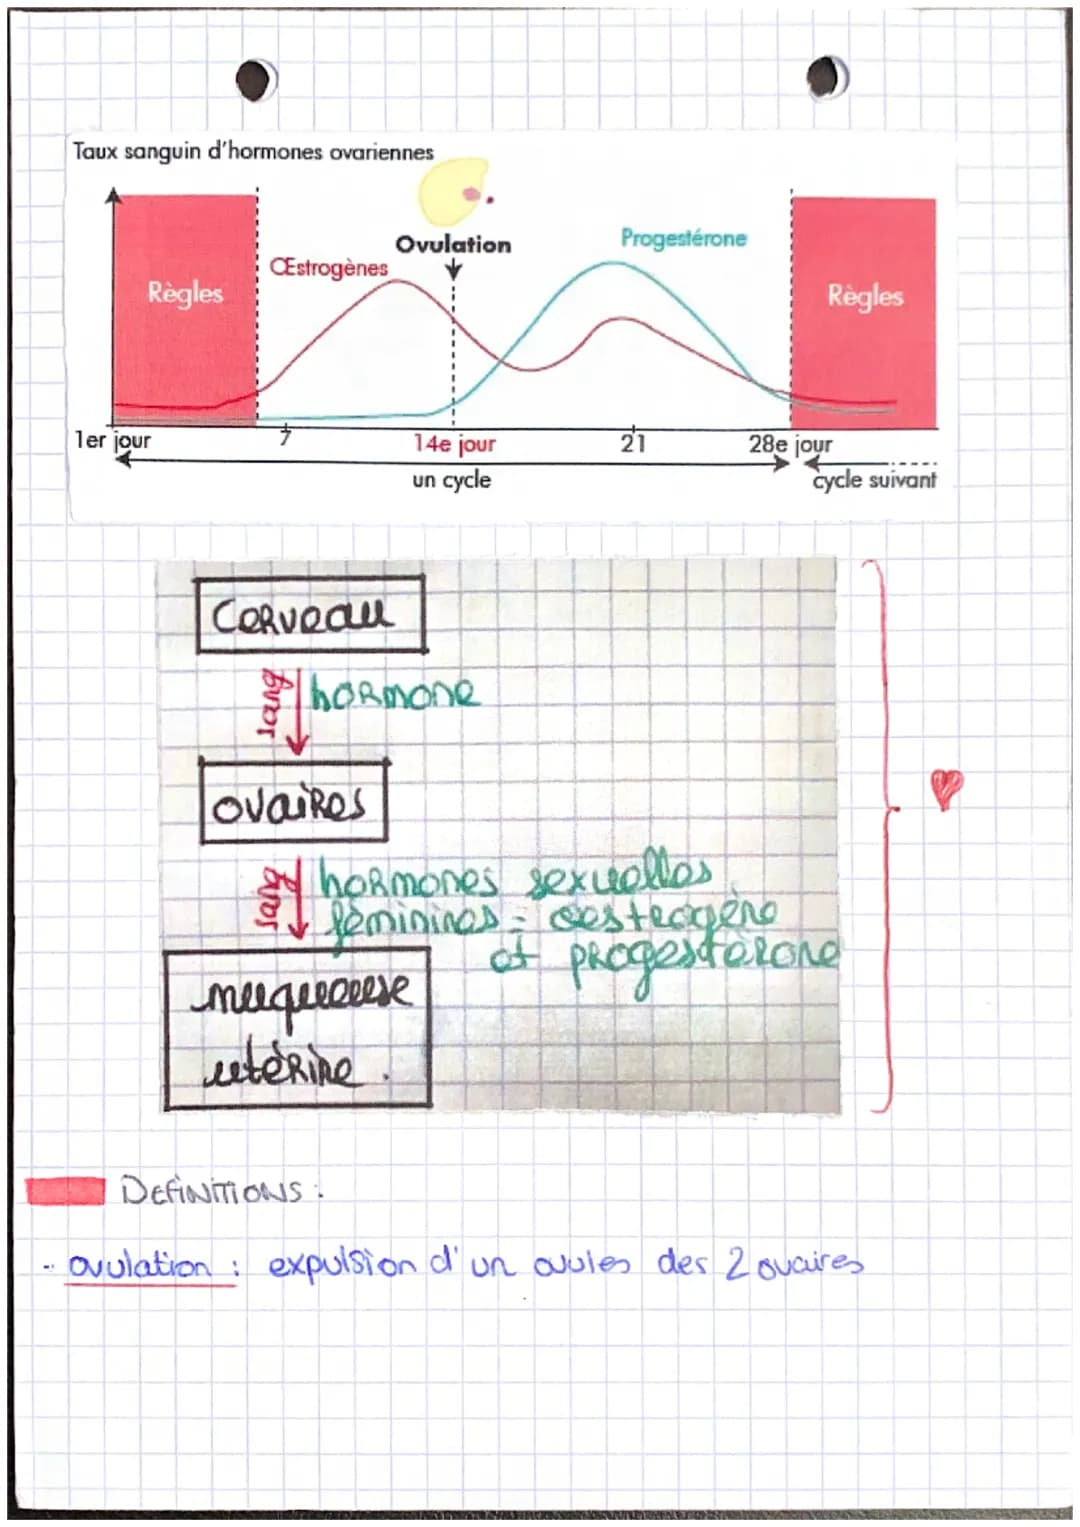 Taux sanguin d'hormones ovariennes
Ovulation
Progestérone
Œstrogènes
Règles
Règles
1er jour
7
14e jour
21
28e jour
un cycle
cycle suivant
Cerveau
sang
hormone
ovaires
sang
hormones sexuelles
féminines = oestrogène
et progestérone
muqueuse
utérine.
DEFINITIONS :
- ovulation : expulsion d'un ovules des 2 ovaires